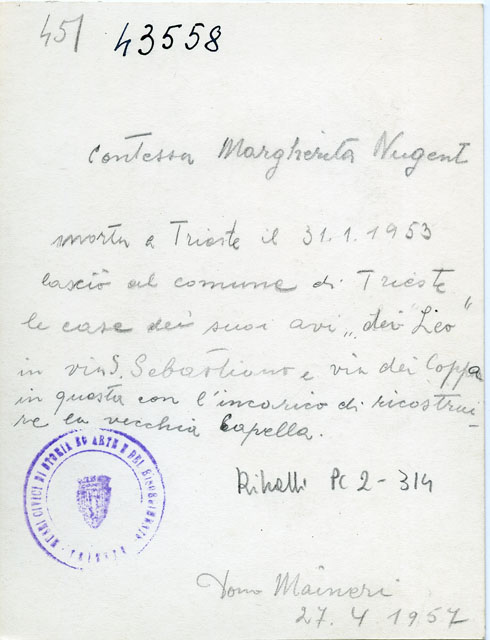 451 43558
Contessa Margherita Nugent
morta a Trieste il 31.1.1953
lasciò al comune di Trieste
le case dei suoi avi „dei Leo"
in via S. Sebastiano e via dei Coppa
in questa con l'incarico di ricostrui-
re la vecchia Capella.
MUSEI CIVICI DI STORIA ED ARTE E DEL RISORGIMENTO · TRIESTE ·
PC 2 - 314
Dono Maineri
27. 4 1957